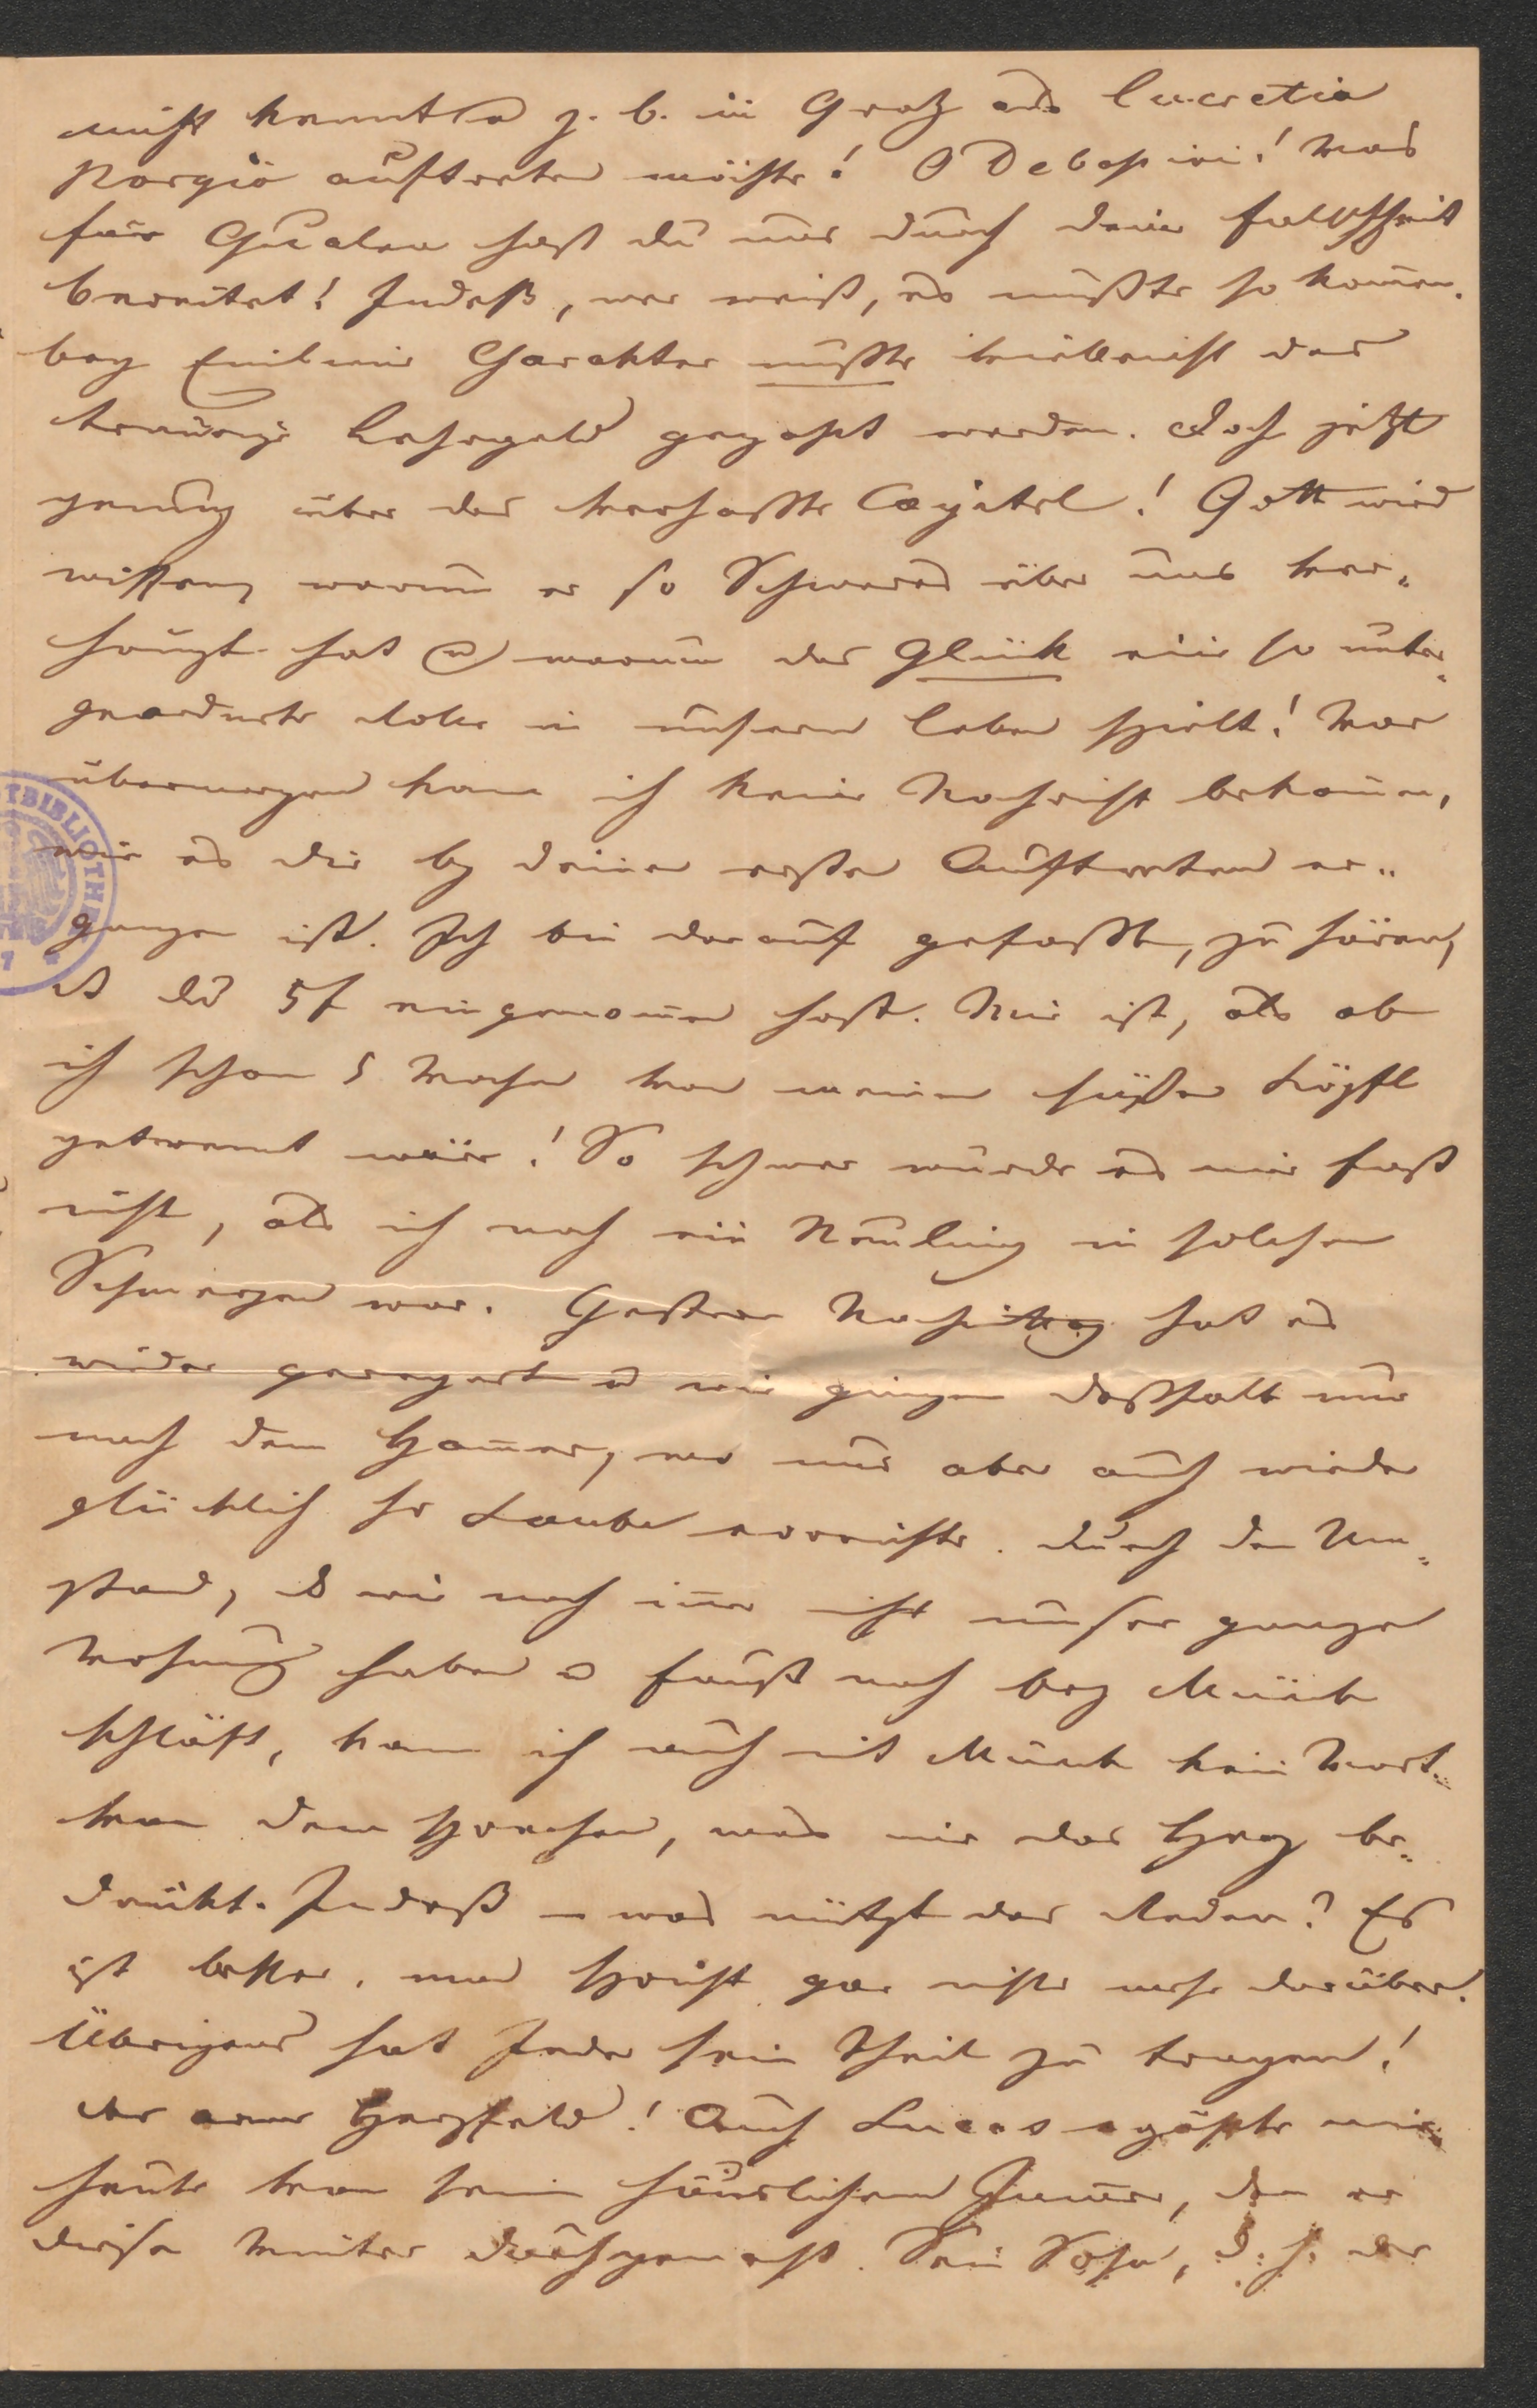 nicht kennt u z. b. in Graz als Lucretia
Borgia auftreten möchte! O Debassini! Was
für Qualen hast du uns durch deine Falschheit
bereitet! Indeß, wer weiß, es mußte so kom̄en.
bey Charakter mußte vielleicht das
traurige Lehrgeld gezahlt werden. Doch jetzt
genug über das verhaßte Capitel! Gott wird
wissen, warum er so Schweres über uns ver-
hängt hat u warum das Glück eine so unter-
geordnete Rolle in unserm Leben spielt! Vor
übermorgen kann ich keine Nachricht bekom̄en,
wie es dir bey deinem ersten Auftreten er-
gangen ist. Ich bin darauf gefaßt, zu hören,
du 5 f eingenom̄en hast. Mir ist, als ob
ich schon 5 Wochen von meinem süßen Köpfl
getrennt wäre! So schwer wurde es mir fast
nicht, als ich noch ein Neuling in solchen
Schmerzen war. Gestern Nachmittag hat es
wieder geregnet u wir gingen deßhalb nur
nach dem Ham̄er, wo uns aber auch wieder
glücklich H Laube erreichte. Durch den Um-
stand, wir noch im̄er nicht unsere ganze
Wohnung haben u Faust noch bey Münk
schläft, kann ich auch mit Münk kein Wort
von dem sprechen, was mir das Herz be-
drückt. Indeß – was nützt das Reden? Es
ist besser, man spricht gar nichts mehr darüber.
Übrigens hat Jeder sein Theil zu tragen!
Der arme Herzfeld! Auch Lucas erzählte mir
heute von seinem häuslichen Jam̄er, den er
diesen Winter durchgemacht. Sein Sohn, d. h. der